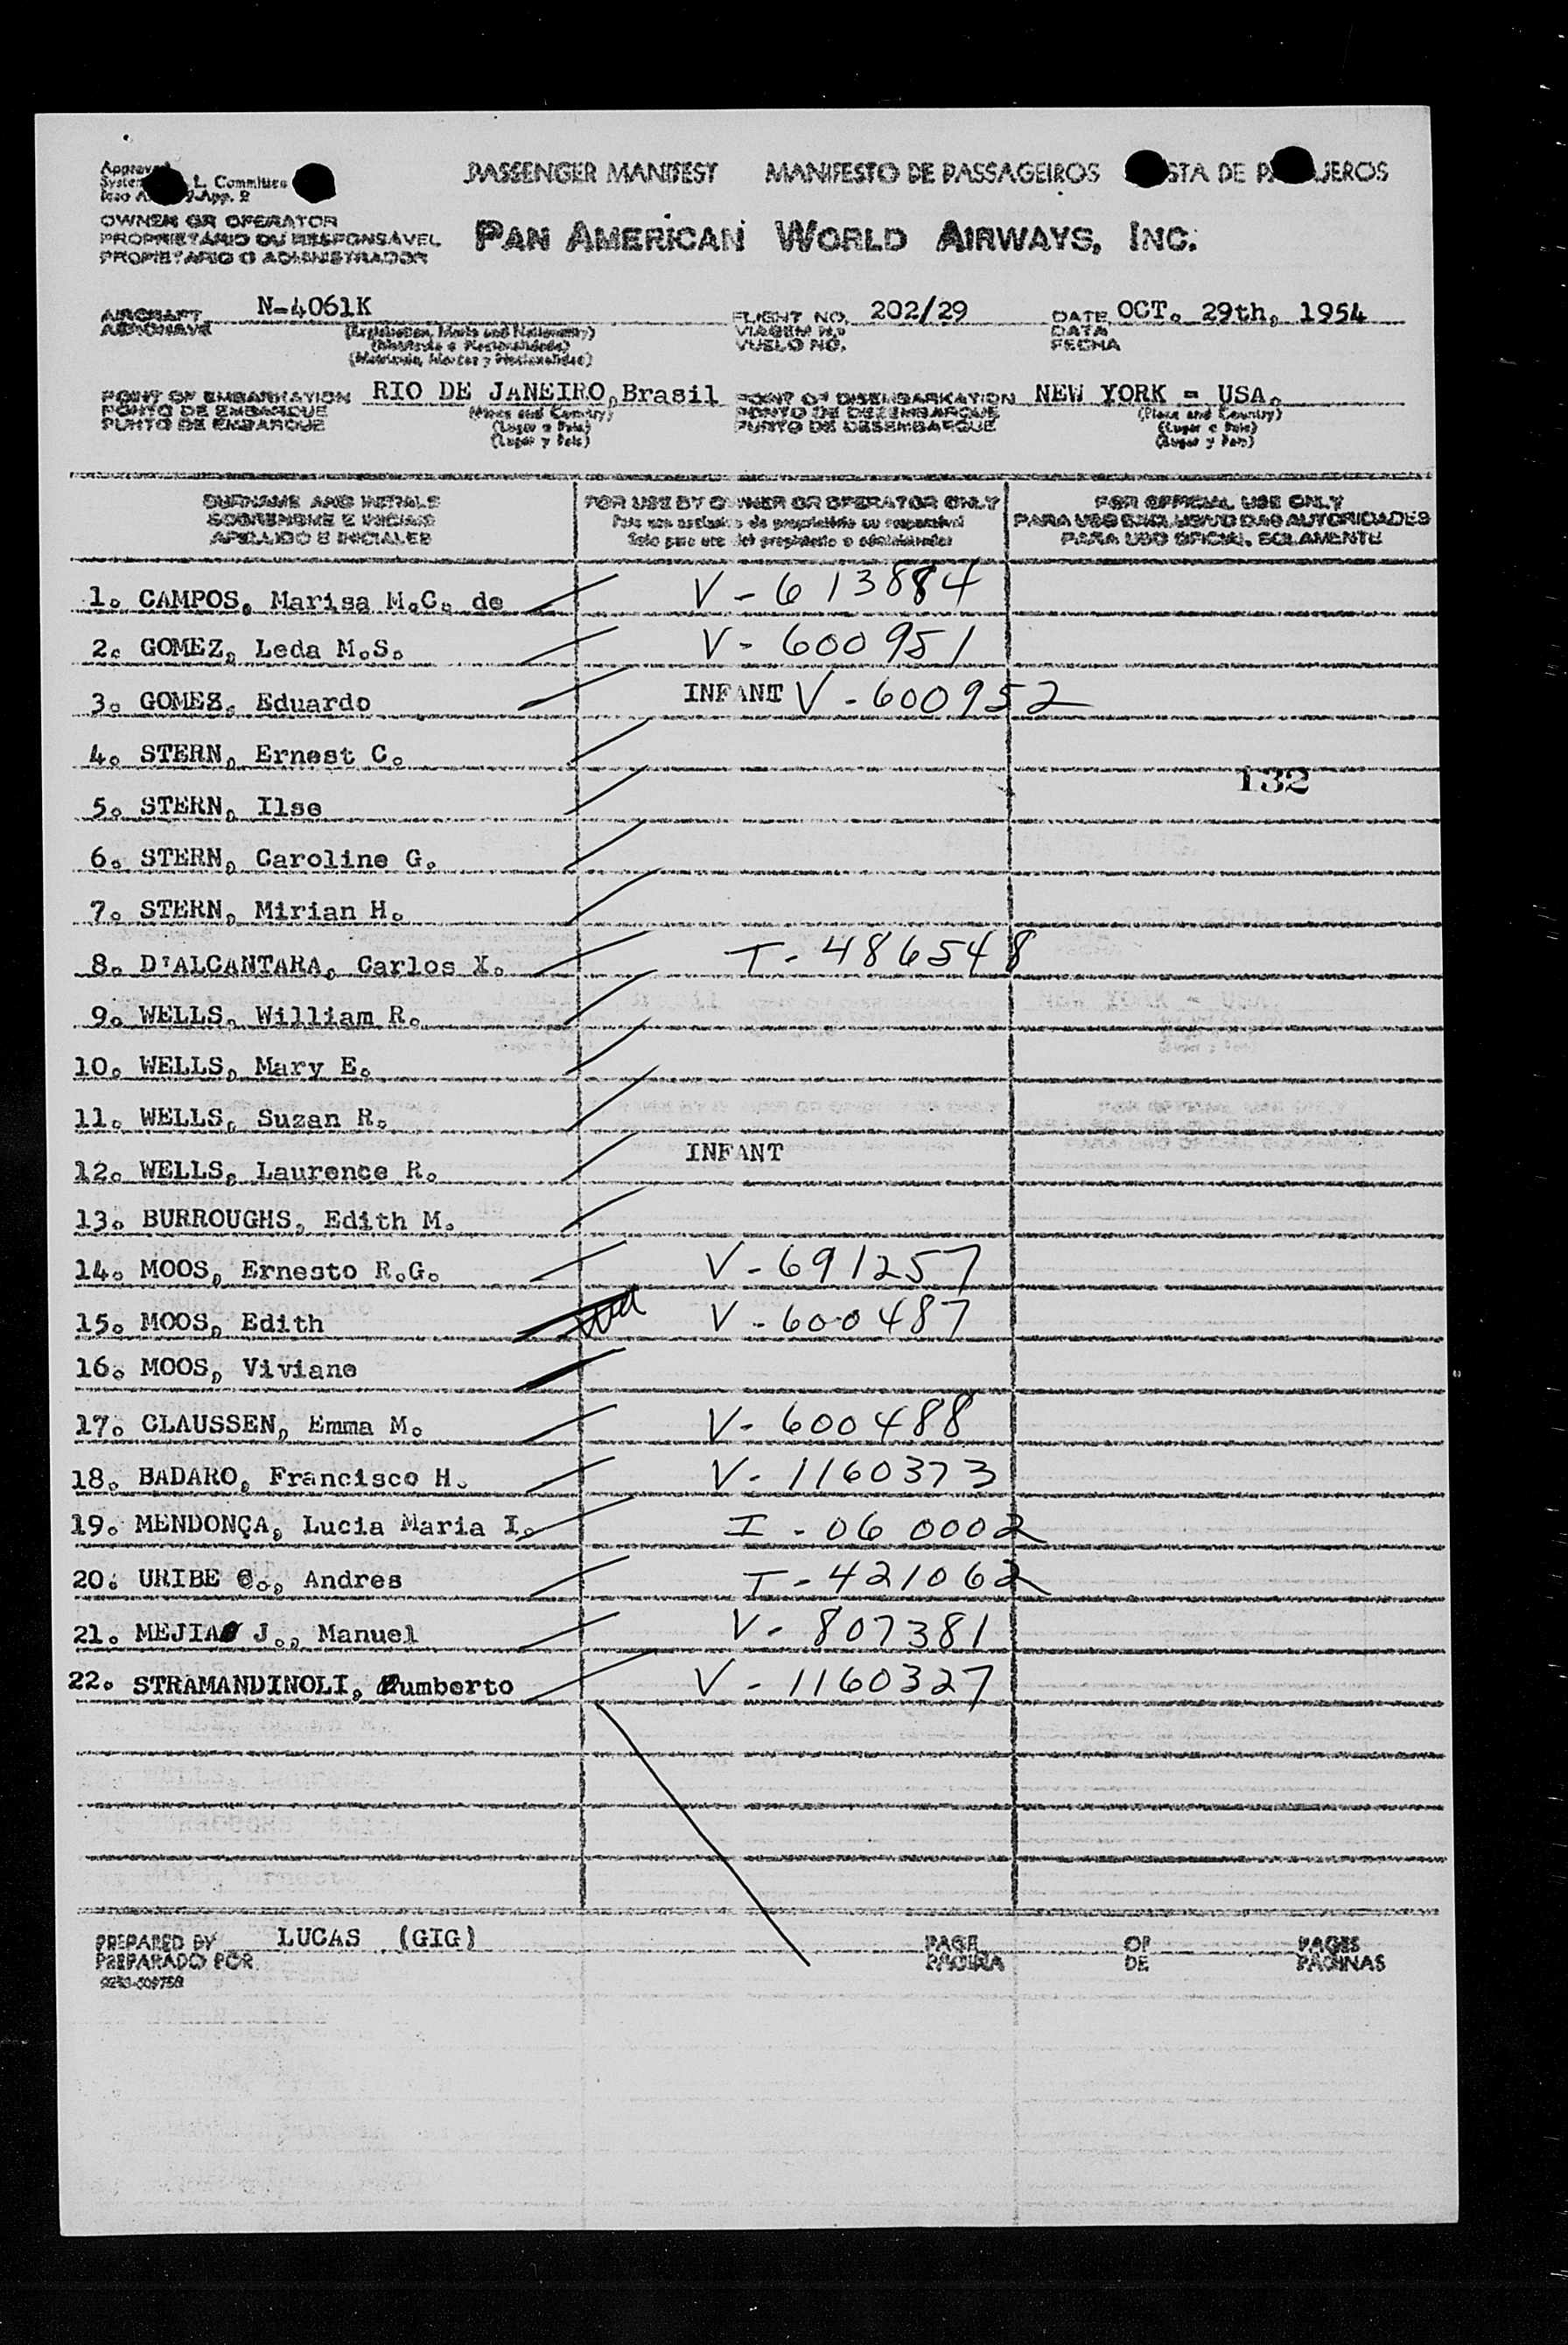 PASSENGER MANIFEST MANIFESTO DE PASSAGEIROS STA DE PA JEROS
Approve
System L. Committee
App. 2
OWNER OR OPERATOR
PROPRIETÁRIO OU RESPONSÁVEL
PROPIETARIO O ADMINISTRADOR
PAN AMERICAN WORLD AIRWAYS, INC.
AIRCRAFT N-4061K FLIGHT NO. 202/29 DATE OCT. 29th, 1954
AERONAVE (Registration, Marks and Nationality) VIAGEM N.º DATA
(Matrícula e Nacionalidade) VUELO NO. FECHA
(Matrícula, Marcas y Nacionalidad)
POINT OF EMBARKATION RIO DE JANEIRO,Brasil POINT OF DISEMBARKATION NEW YORK - USA.
PONTO DE EMBARQUE (Place and Country) PONTO DE DEZEMBARQUE (Place and Country)
PUNTO DE EMBARQUE (Lugar e País) PUNTO DE DESEMBARQUE (Lugar e País)
(Lugar y País) (Lugar y País)
SURNAME AND INITIALS FOR USE BY OWNER OR OPERATOR ONLY FOR OFFICIAL USE ONLY
SOBRENOME E INICIAIS Para uso exclusivo do proprietário ou responsável PARA USO EXCLUSIVO DAS AUTORIDADES
APELLIDO E INICIALES Solo para uso del propietario o administrador PARA USO OFICIAL SOLAMENTE
1. CAMPOS, Marisa M.C. de V - 613884
2. GOMEZ, Leda M.S. V - 600951
3. GOMEZ, Eduardo INFANT V - 600952
4. STERN, Ernest C.
132
5. STERN, Ilse
6. STERN, Caroline G.
7. STERN, Mirian H.
8. D'ALCANTARA, Carlos X. T - 486548
9. WELLS, William R.
10. WELLS, Mary E.
11. WELLS, Suzan R.
12. WELLS, Laurence R. INFANT
13. BURROUGHS, Edith M.
14. MOOS, Ernesto R.G. V - 691257
15. MOOS, Edith V - 600487
16. MOOS, Viviane
17. CLAUSSEN, Emma M. V - 600488
18. BADARO, Francisco H. V - 1160373
19. MENDONÇA, Lucia Maria I. I - 060002
20. URIBE C., Andres I - 421062
21. MEJIA J., Manuel V - 807381
22. STRAMANDINOLI, umberto V - 1160327
PREPARED BY LUCAS (GIG) PAGE OF PAGES
PREPARADO POR PÁGINA DE PÁGINAS